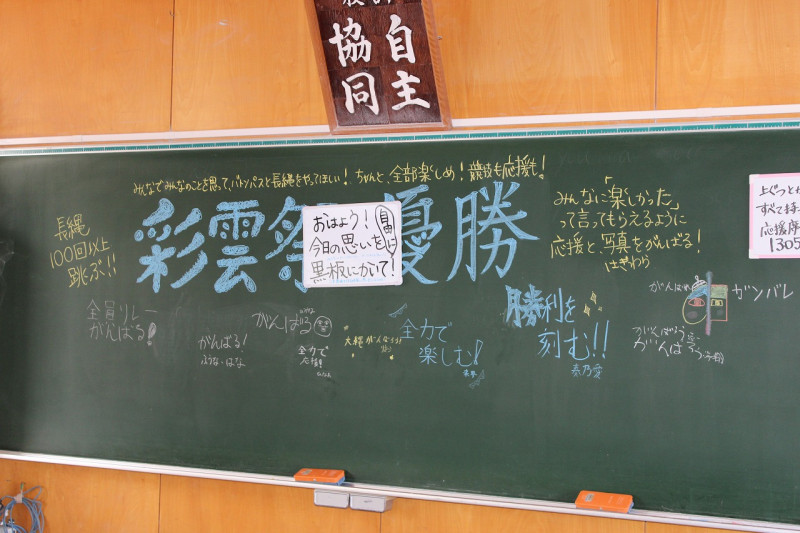 自主
協同
みんなでみんなのことを思って、バトンパスと長縄をやってほしい！ちゃんと、全部楽しめ！競技も応援も！
彩雲祭 優勝
おはよう！
今日の思いを自由に
黒板にかいて！
長縄
100回以上
跳ぶ!!
「みんなに楽しかった」
って言ってもらえるように
応援と、写真をがんばる！
はぎわら
すべて持
応援席
1305
全員リレー
がんばる！
がんばる！
がんばる
全力で
応援！
大縄がんばろう！
全力で
楽しむ！
勝利を
刻む!!
がんばれ
ガンバレ
がんばろう